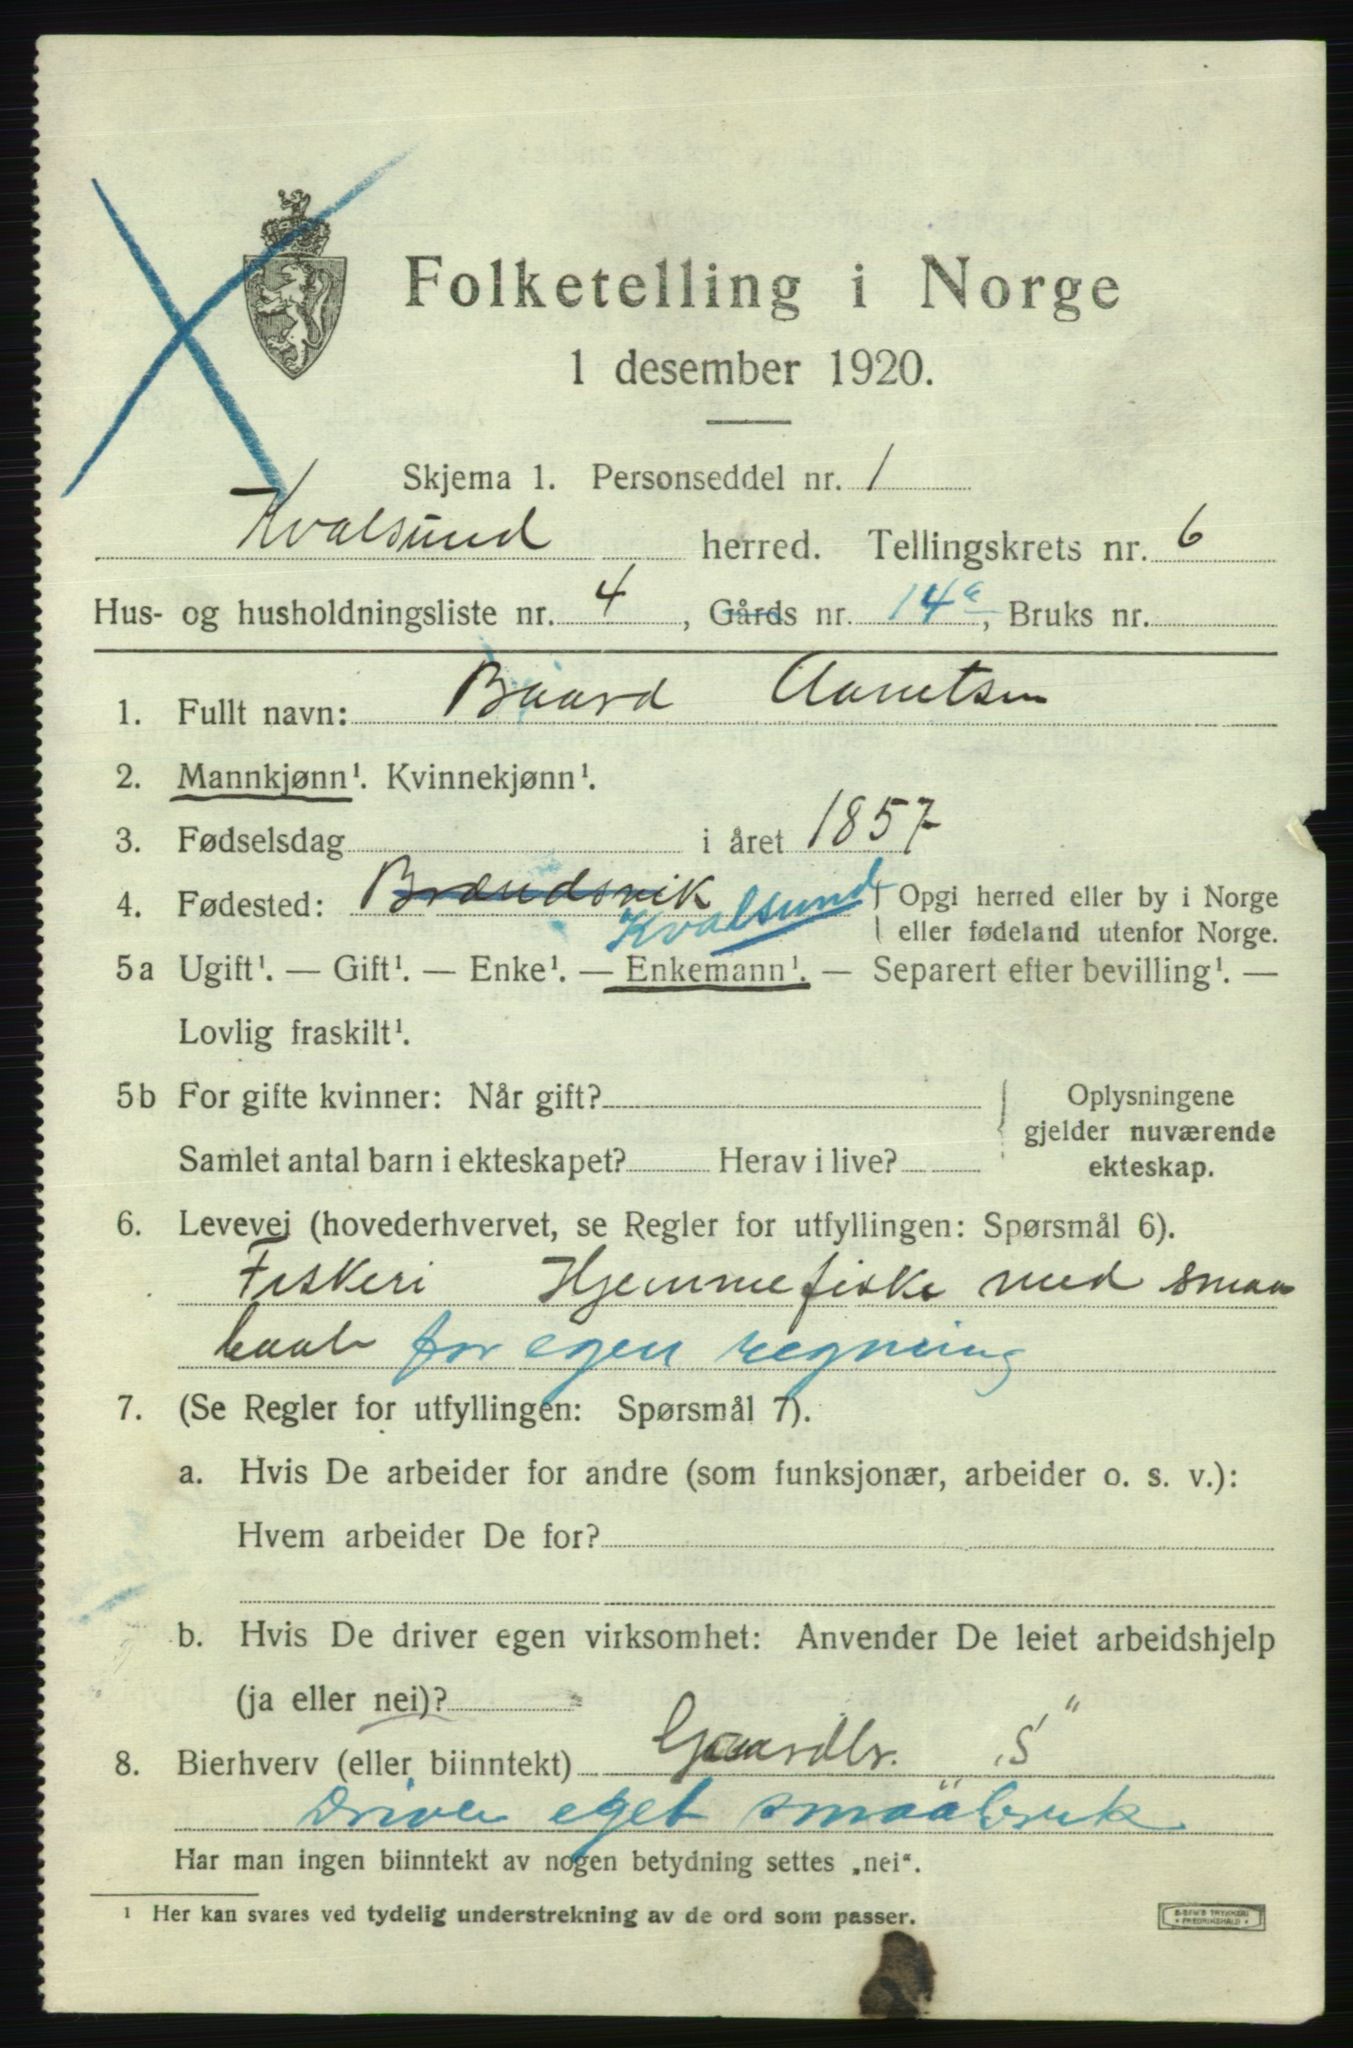 Folketelling i Norge
1 desember 1920.
Skjema 1. Personseddel nr. 1
Kvalsund herred. Tellingskrets nr. 6
Hus- og husholdningsliste nr. 4, Gårds nr. 14a, Bruks nr.
1. Fullt navn: Baard
2. Mannkjønn¹. Kvinnekjønn¹.
3. Fødselsdag i året 1857
4. Fødested: Brændsvik Kvalsund
Opgi herred eller by i Norge
eller fødeland utenfor Norge.
5a Ugift¹. — Gift¹. — Enke¹. — Enkemann¹. — Separert efter bevilling¹. —
Lovlig fraskilt¹.
5b For gifte kvinner: Når gift?
Samlet antal barn i ekteskapet? Herav i live?
Oplysningene
gjelder nuværende
ekteskap.
6. Levevei (hovederhvervet, se Regler for utfyllingen: Spørsmål 6).
Fiskeri Hjemmefiske med smaa
baat for egen regning
7. (Se Regler for utfyllingen: Spørsmål 7).
a. Hvis De arbeider for andre (som funksjonær, arbeider o. s. v.):
Hvem arbeider De for?
b. Hvis De driver egen virksomhet: Anvender De leiet arbeidshjelp
(ja eller nei)?
8. Bierhverv (eller biinntekt) Gaardbr. "S"
Driver eget småäbruk
Har man ingen biinntekt av nogen betydning settes „nei“.
¹ Her kan svares ved tydelig understrekning av de ord som passer.